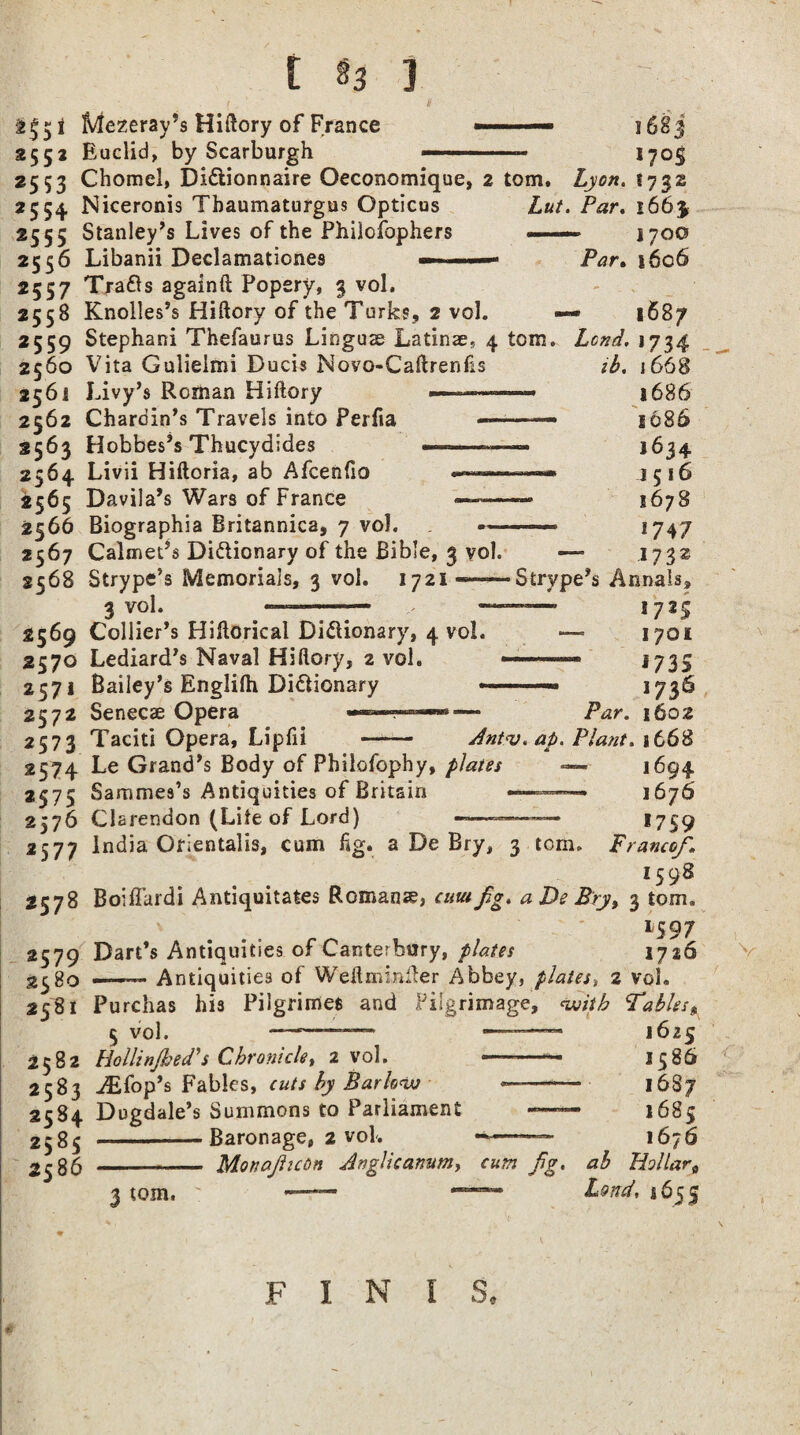 [ 83 ]
2551 Mezeray's Hiſtory of France —— 1683
2552 Euclid, by Scarburgh —— 1705
2553 Chomel, Dictionnaire Oeconomique, 2 tom. Lyon. 1732
2554 Niceronis Thaumaturgus Opticus Lut. Par. 1663
2555 Stanley's Lives of the Philoſophers —— 1700
2556 Libanii Declamationes —— Par. 1606
2557 Tracts againſt Popery, 3 vol.
2558 Knolles's Hiſtory of the Turks, 2 vol. — 1687
2559 Stephani Theſaurus Linguæ Latinæ, 4 tom. Lond. 1734
2560 Vita Gulielmi Ducis Novo-Caſtrenſis ib. 1668
2561 Livy's Roman Hiſtory —— 1686
2562 Chardin's Travels into Perſia —— 1686
2563 Hobbes's Thucydides —— 1634
2564 Livii Hiſtoria, ab Aſcenſio —— 1516
2565 Davila's Wars of France —— 1678
2566 Biographia Britannica, 7 vol. —— 1747
2567 Calmet's Dictionary of the Bible, 3 vol. — 1732
2568 Strype's Memorials, 3 vol. 1721 —— Strype's Annals,
3 vol. —— —— 1725
2569 Collier's Hiſtorical Dictionary, 4 vol. — 1701
2570 Lediard's Naval Hiſtory, 2 vol. —— 1735
2571 Bailey's Engliſh Dictionary —— 1736
2572 Senecæ Opera —— — Par. 1602
2573 Taciti Opera, Lipſii —— Antv. ap. Plant. 1668
2574 Le Grand's Body of Philoſophy, plates — 1694
2575 Sammes's Antiquities of Britain —— 1676
2576 Clarendon (Life of Lord) —— 1759
2577 India Orientalis, cum fig. a De Bry, 3 tom. Francof.
1598
2578 Boiſſardi Antiquitates Romanæ, cum fig. a De Bry, 3 tom.
1597
2579 Dart's Antiquities of Canterbury, plates 1726
2580 —— Antiquities of Weſtminſter Abbey, plates, 2 vol.
2581 Purchas his Pilgrimes and Pilgrimage, with Tables,
5 vol. —— —— 1625
2582 Hollinſhed's Chronicle, 2 vol. —— 1586
2583 Æſop's Fables, cuts by Barlow —— 1687
2584 Dugdale's Summons to Parliament —— 1685
2585 —— Baronage, 2 vol. —— 1676
2586 —— Monaſticon Anglicanum, cum fig. ab Hollar,
3 tom. —— —— Lond. 1655
FINIS.